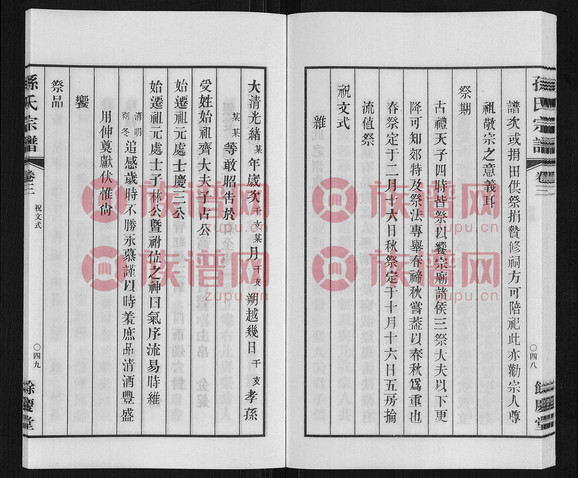 孫氏宗譜 卷三 〇四八 餘慶堂
譜次或捐田供祭捐貲修祠方可陪祀此亦勸宗人尊
祖敬宗之意義耳
祭期
古禮天子四時皆祭以饗宗廟諸侯三祭大夫以下更
降可知郊特及祭法專舉春禘秋嘗蓋以春秋為重也
春祭定于二月十六日秋祭定于十月十六日五房掄
流值祭
祝文式
維
大清光緒某年歲次干支某月干支朔越幾日干支孝孫
某某等敢昭告於
受姓始祖齊大夫子占公
始遷祖元處士慶三公
始遷祖元處士子林公暨祔位之神曰氣序流易時維
清明
孟冬追感歲時不勝永慕謹以時羞庶品清酒豐盛
用伸奠獻伏惟尚
饗
祭品
孫氏宗譜 卷三 祝文式 〇四九 餘慶堂
族谱网
zupu.cn
族谱网
zupu.cn
族谱网
zupu.cn
族谱网
zupu.cn